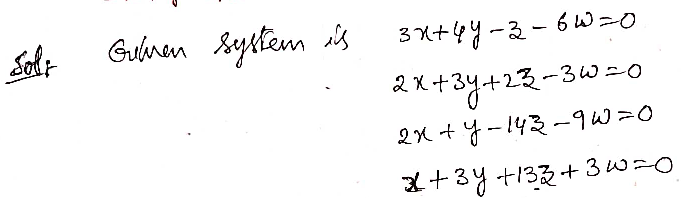 Sol: Given system is 3x+4y-z-6w=0
2x+3y+2z-3w=0
2x+y-14z-9w=0
x+3y+13z+3w=0